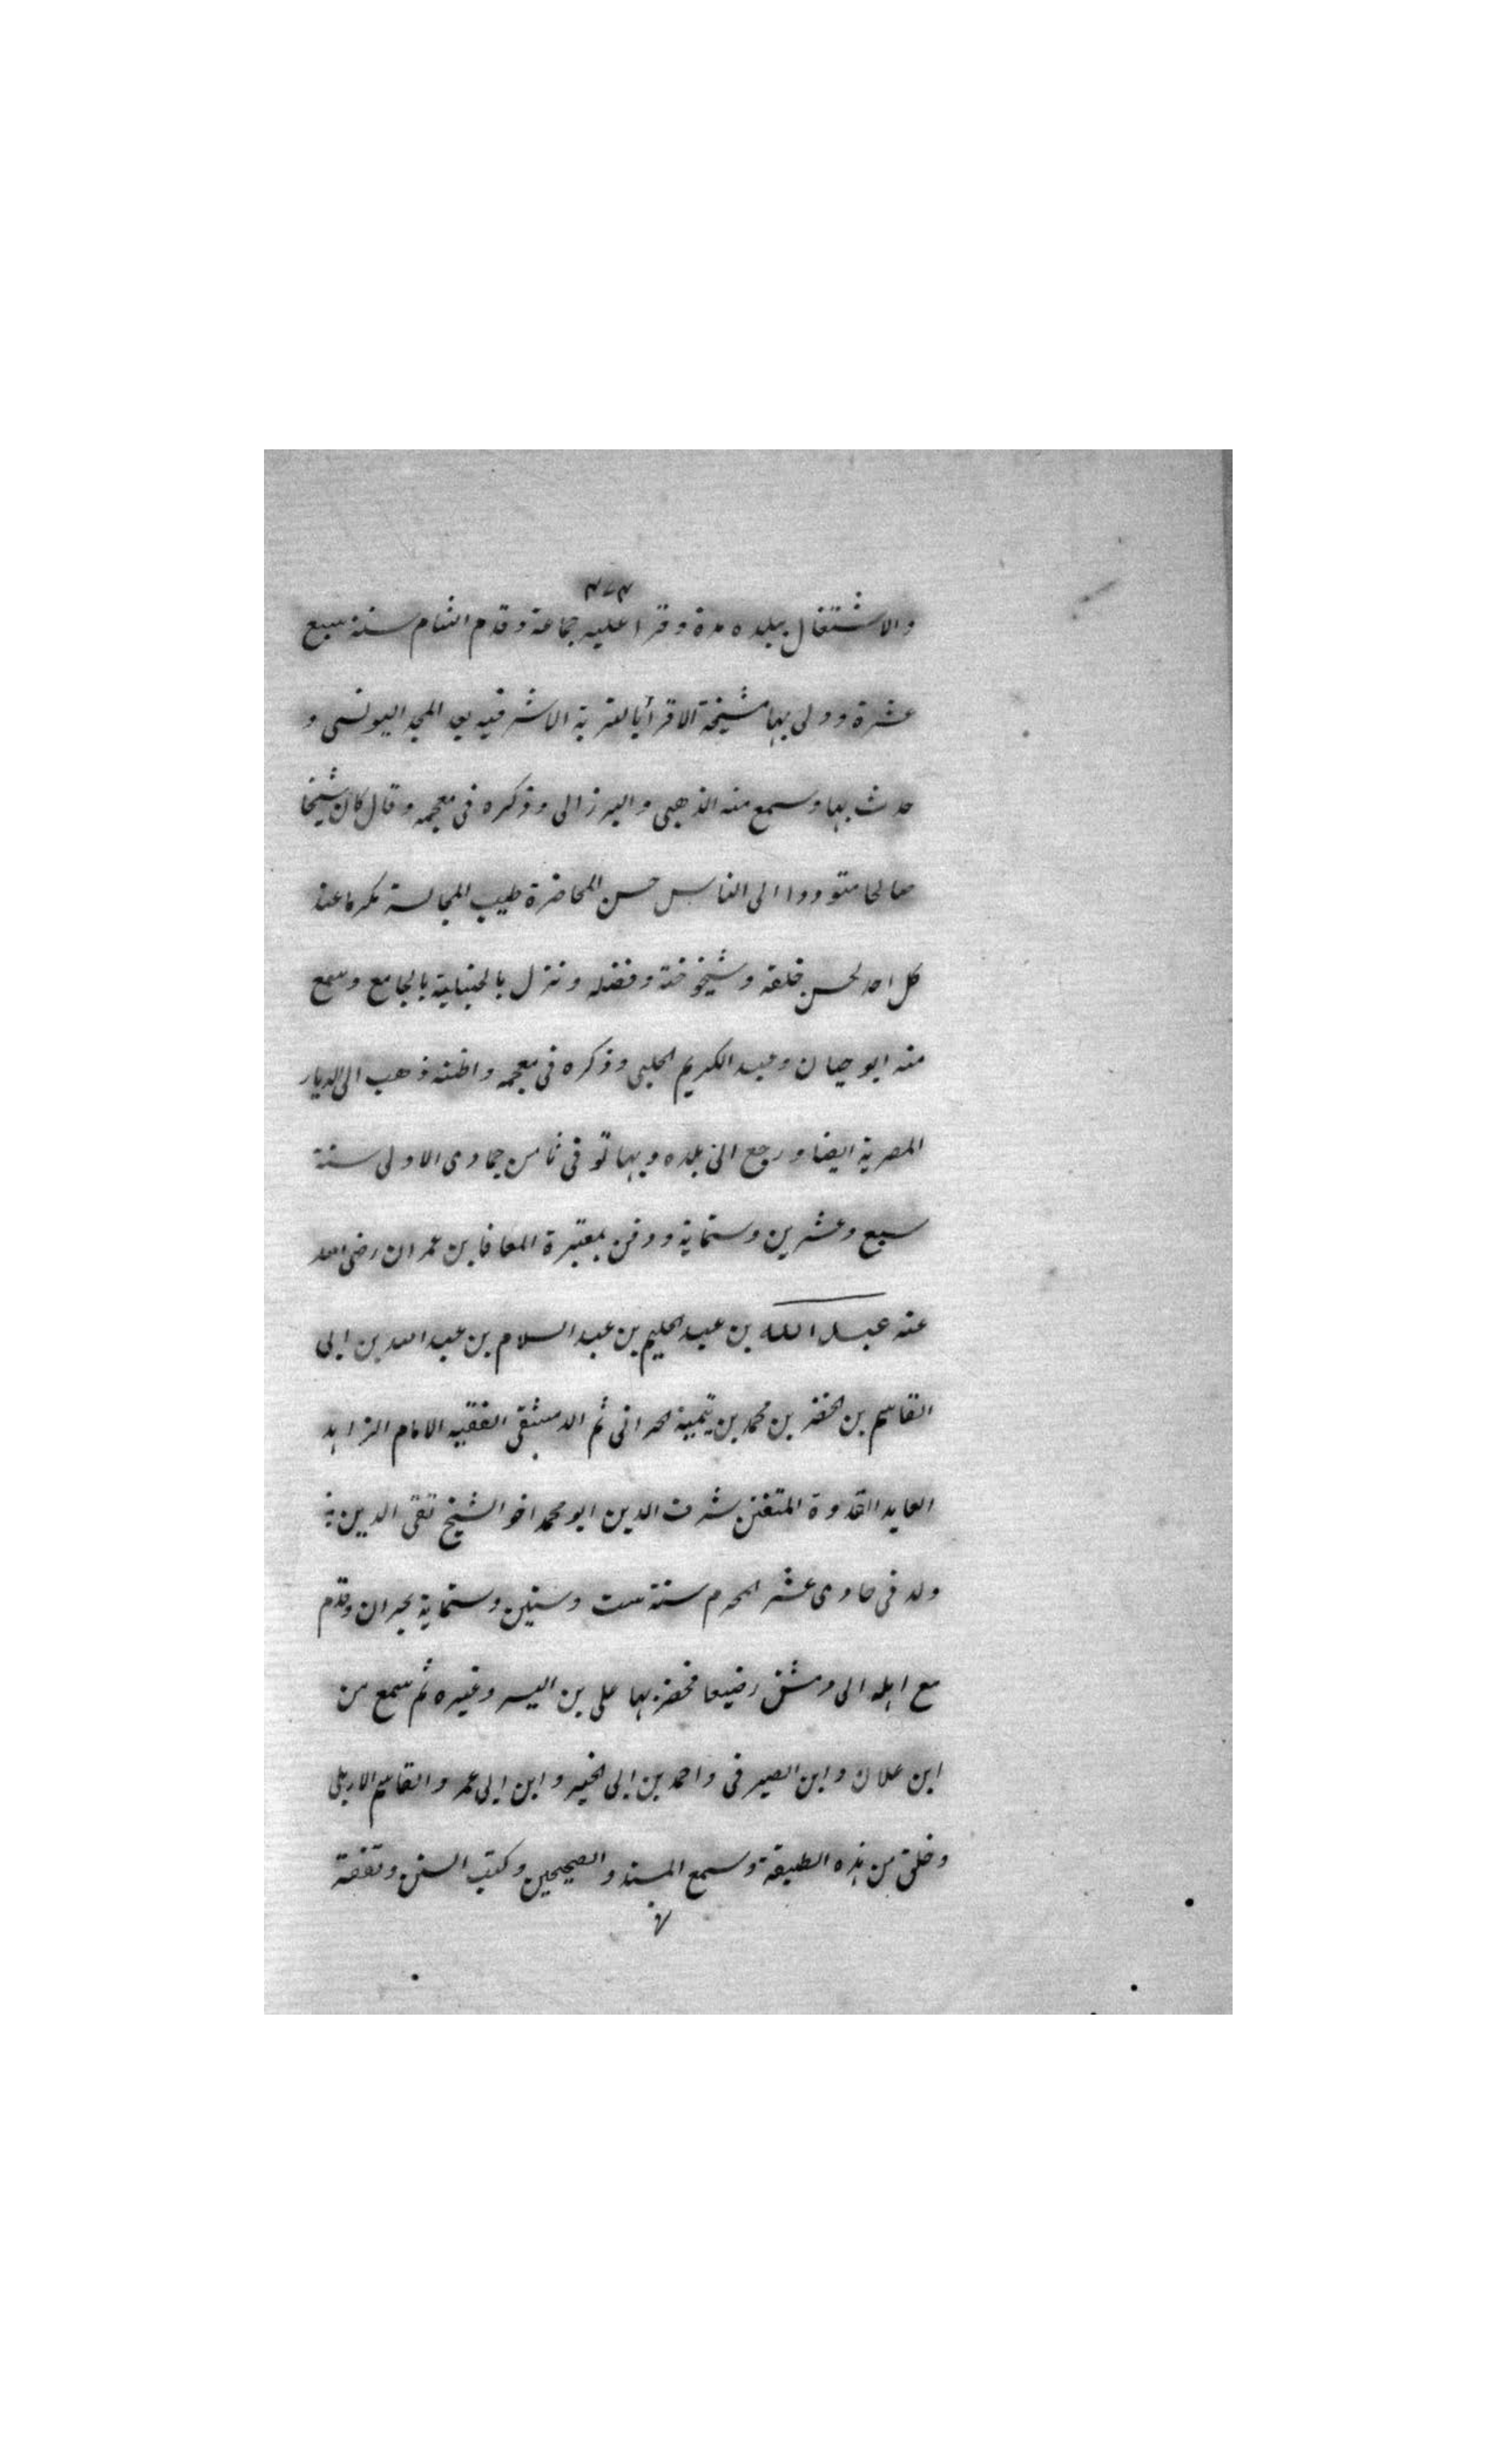 ٤٧٤
والاشتغال ببلده مدة وقرا عليه جماعة وقدم الشام سنة سبع
عشرة وولى بها مشيخة الاقرأ بالتربة الاشرفيه بعد المجد اليونسى و
حدث بها وسمع منه الذهبى والبرزالى وذكره فى معجمه وقال كان شيخا
صالحا متوددا الى الناس حسن المحاضرة طيب المجالسة مكرما عند
كل احد لحسن خلقه وشيخوخته وفضله ونزل بالحنبلية بالجامع وسمع
منه ابو حيان وعبد الكريم الحلبى وذكره فى معجمه واظنه ذهب الى الديار
المصرية ايضا ورجع الى بلده وبها توفى ثامن جمادى الاولى سنة
سبع وعشرين وستماية ودفن بمقبرة المعافا بن عمران رضى الله
عنه عبد الله بن عبد الحليم بن عبد السلام بن عبد الله بن ابى
القاسم بن الخضر بن محمد بن تيمية الحرانى ثم الدمشقى الفقيه الامام الزاهد
العابد القدوة المتفنن شرف الدين ابو محمد اخو الشيخ تقى الدين
ولد فى حادى عشر المحرم سنة ست وستين وستماية بحران وقدم
مع اهله الى دمشق رضيعا فحضر بها على بن اليسر وغيره ثم سمع من
ابن علان وابن الصيرفى واحمد بن ابى الخير وابن ابى عمر والقاسم الاربلى
وخلق من هذه الطبقة وسمع المسند والصحيحين وكتب السنن وتفقه